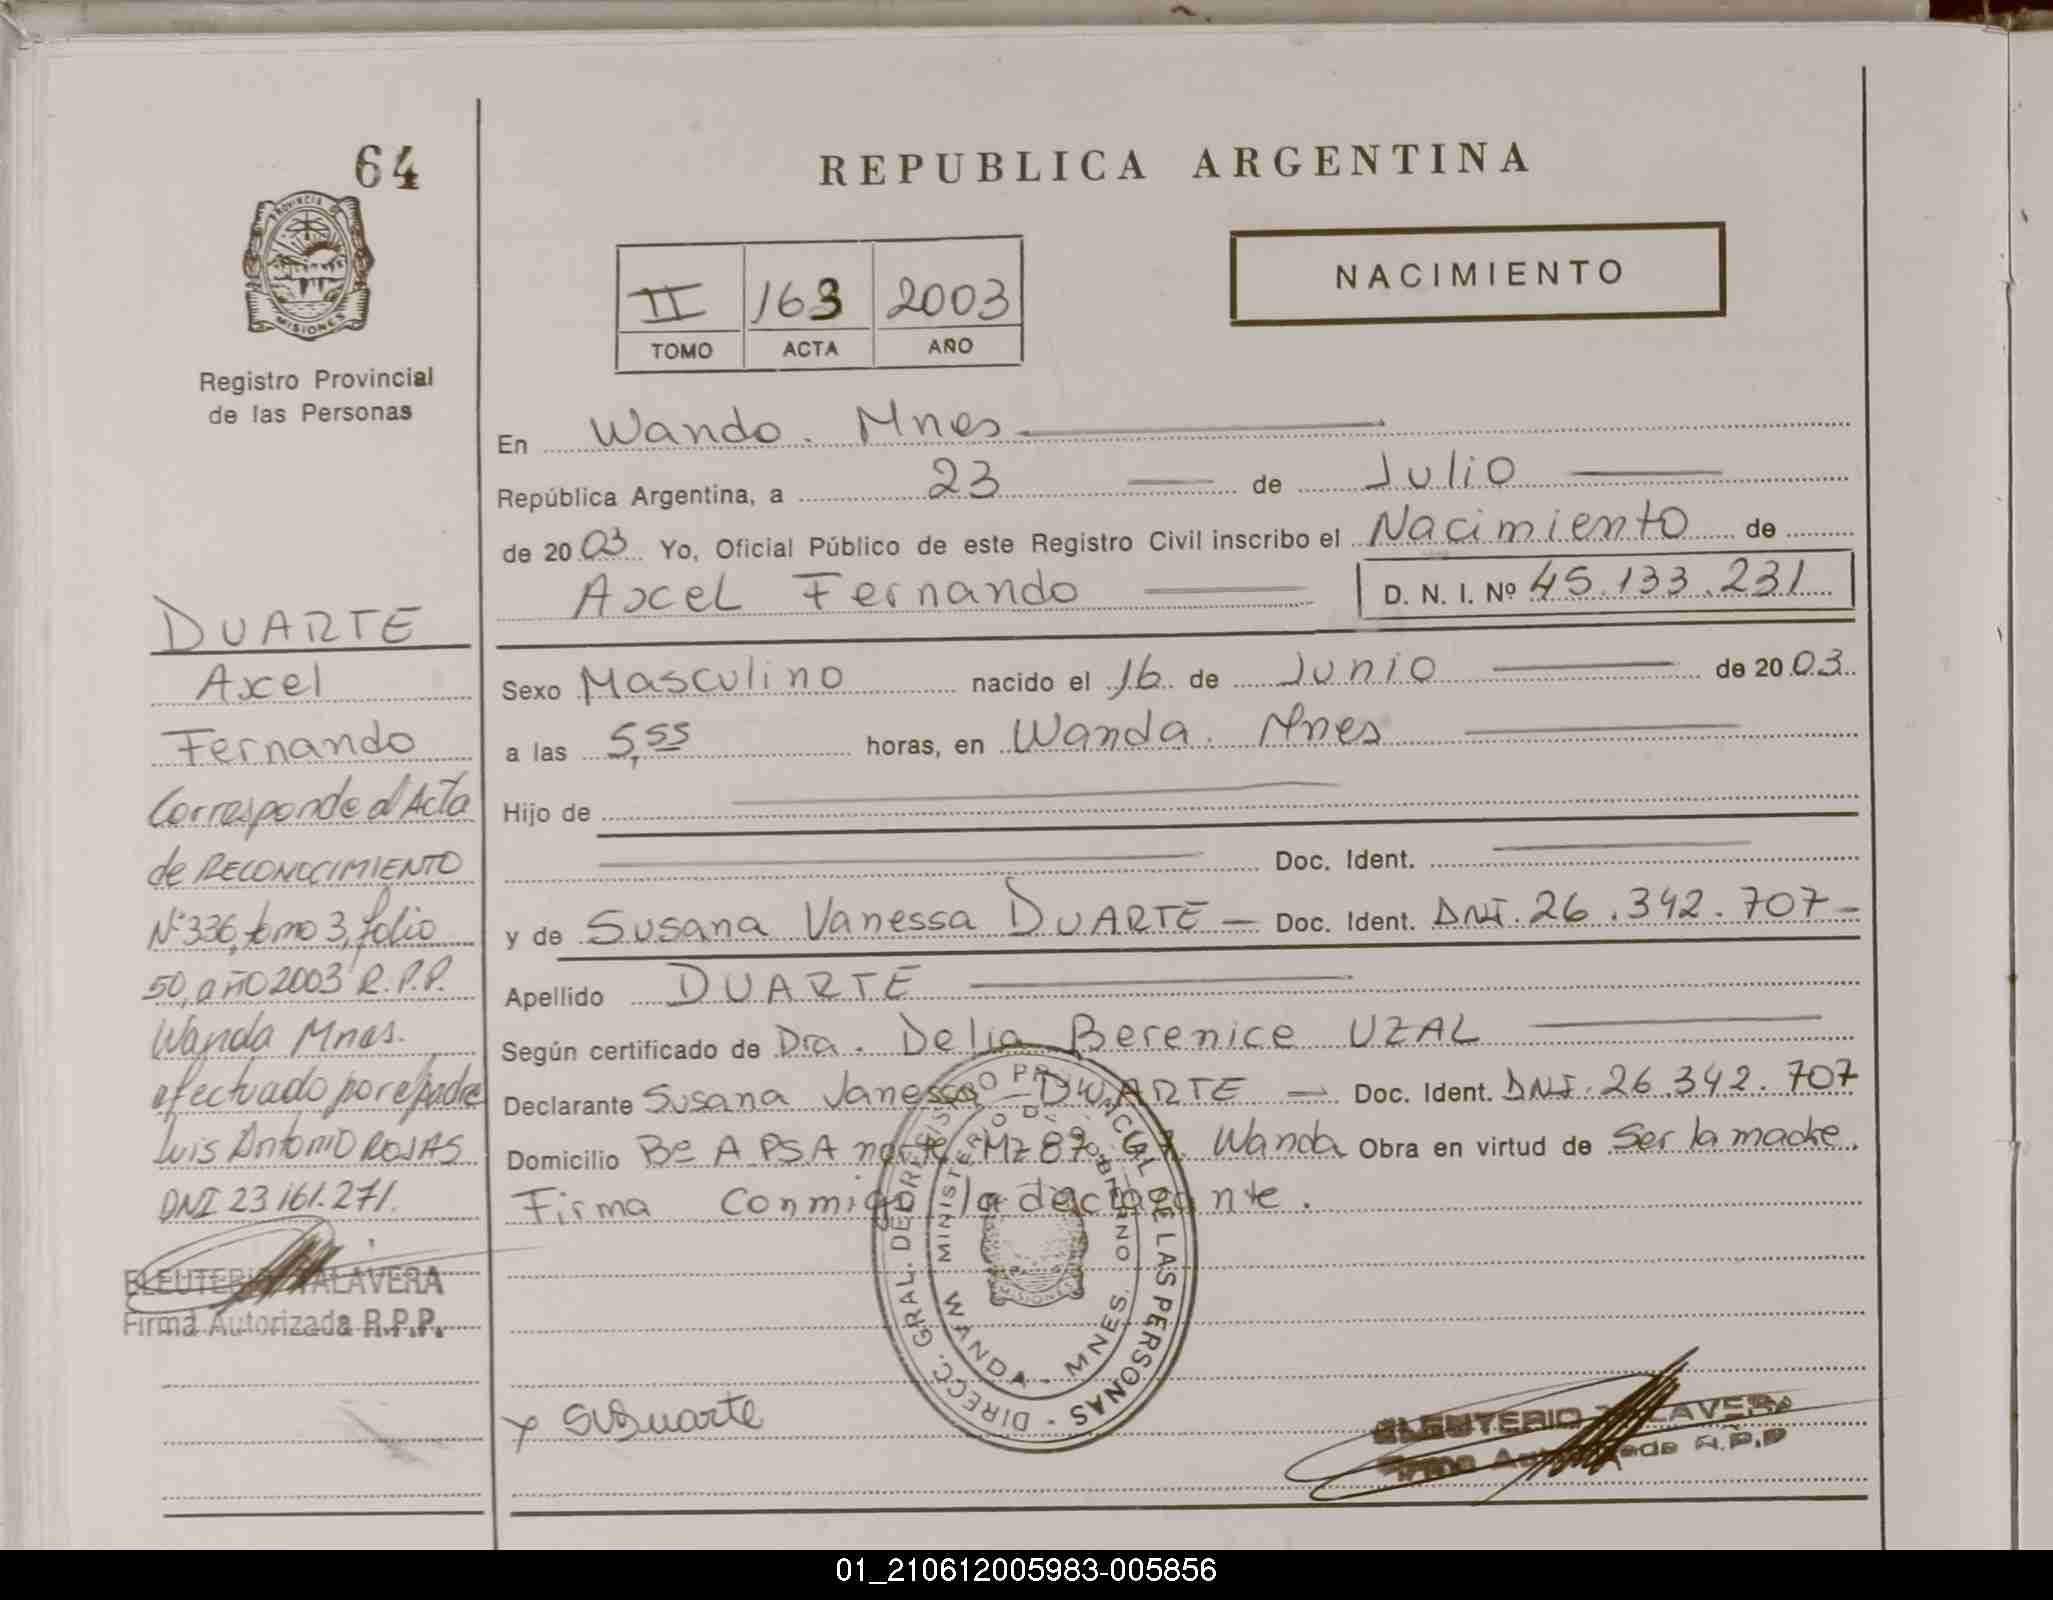 64
REPUBLICA ARGENTINA
PROVINCIA DE
MISIONES
Registro Provincial
de las Personas
II 163 2003
TOMO ACTA AÑO
NACIMIENTO
En Wanda. Mnes
República Argentina, a 23 de Julio
de 2003 Yo, Oficial Público de este Registro Civil inscribo el Nacimiento de
Axcel Fernando D. N. I. Nº 45.133.231
Sexo Masculino nacido el 16 de Junio de 2003
a las 5,55 horas, en Wanda. Mnes
Hijo de
Doc. Ident.
y de Susana Vanessa DUARTE Doc. Ident. DNI. 26.342.707
Apellido DUARTE
Según certificado de Dra. Delia Berenice UZAL
Declarante Susana Vanessa DUARTE Doc. Ident. DNI. 26.342.707
Domicilio Bº A.P.S.A norte Mz 87 Wanda Obra en virtud de Ser la madre.
Firma Conmigo la declarante.
DUARTE
Axcel
Fernando
Corresponde al Acta
de RECONOCIMIENTO
Nº336, tomo 3, folio
50, año 2003 R.P.P.
Wanda Mnes.
efectuado por el padre
Luis Antonio ROJAS
DNI 23.161.271.
ELEUTERIO TALAVERA
Firma Autorizada R.P.P.
DIRECC. GRAL. DE REGISTRO PROVINCIAL DE LAS PERSONAS
MINISTERIO DE GOBIERNO
MISIONES
WANDA - MNES.
x SVDuarte
ELEUTERIO TALAVERA
Firma Autorizada R.P.P
01_210612005983-005856